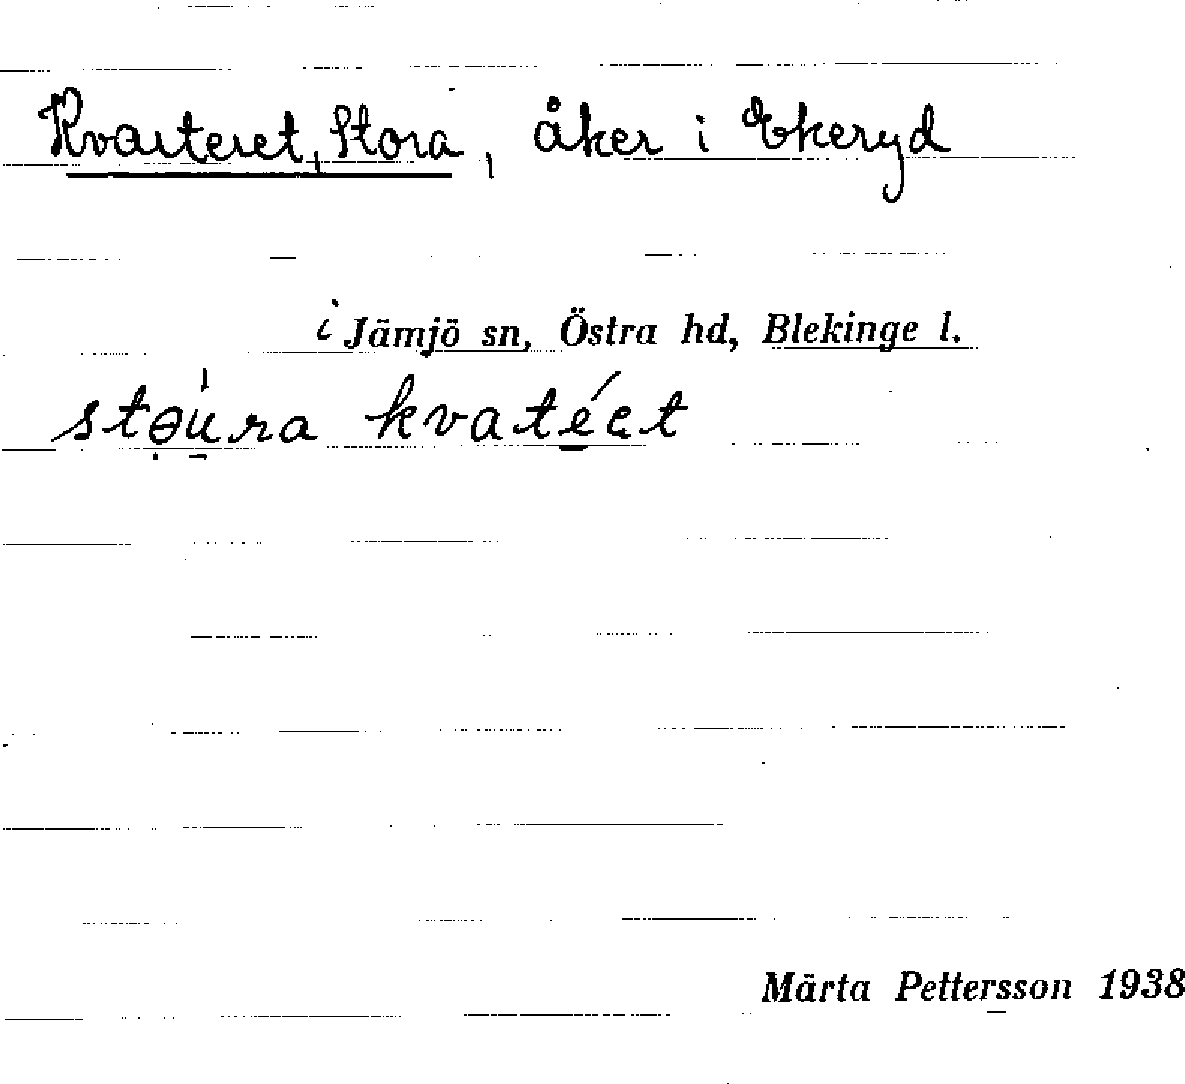 Kvarteret, Stora, åker i Ekeryd
i Jämjö sn, Östra hd, Blekinge l.
stəu̍ra kvatéɛt
Märta Pettersson 1938